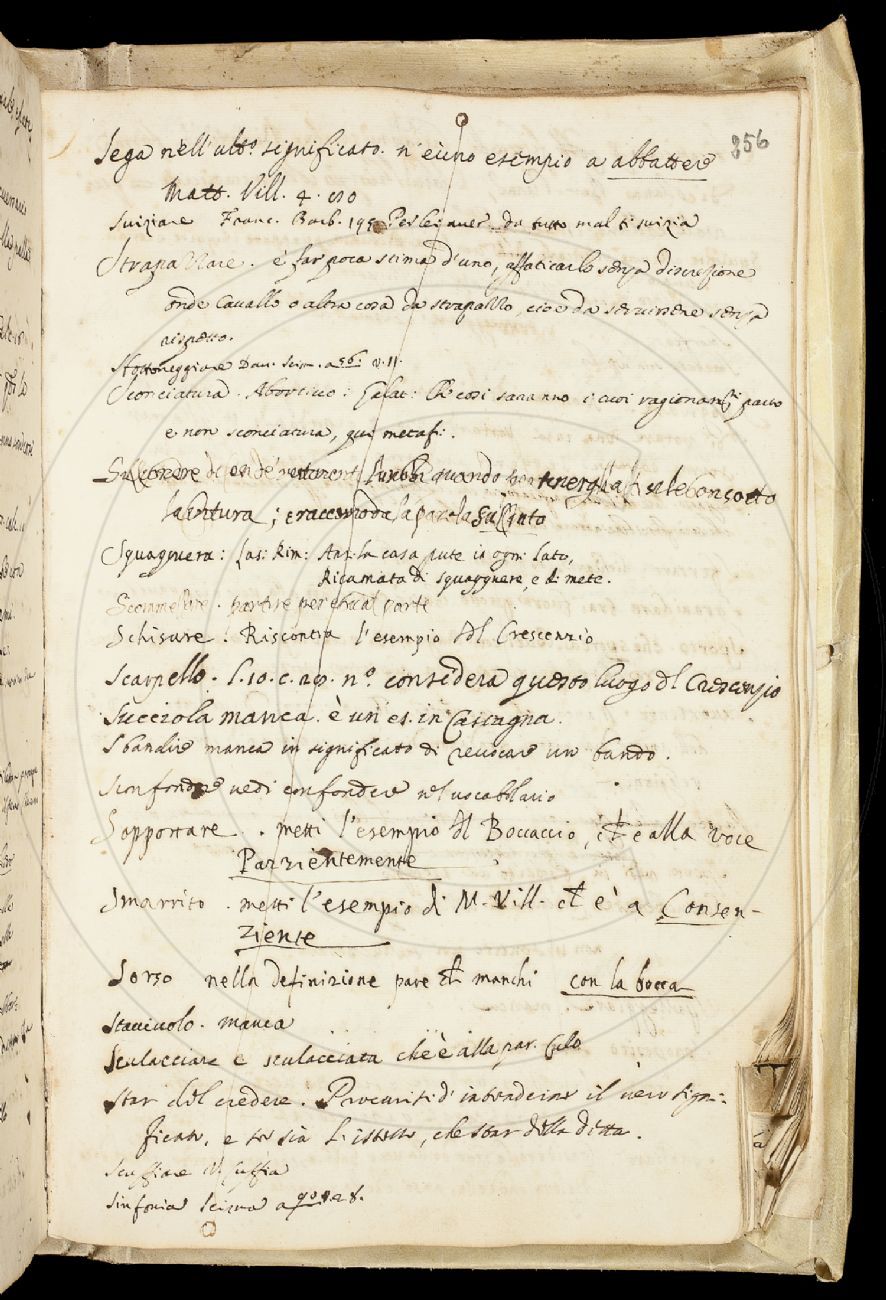 356
Sega nell'ult.º significato. n'è uno esempio a abbattere
Matt. Vill. 4.
Sviziare Franc. Barb. 195. Per lei aver da tutto mal ti svizia
Strapazzare. è far poca stima d'uno, affaticarlo senza discrezione
onde Cavallo o altra cosa da strapazzo, cioè da servirsene senza
rispetto.
Dav. Scism. a 56. v. 11.
Sconciatura. Abortivo: Galat: Che così saranno i tuoi ragionam.ti parto
e non sconciatura, qui metaf:.
quando
la cintura; e raccomoda la parola Succinto
Squaquera: Las: Rim: la casa pute in ogni lato,
Ricamata di squacquere, e di mete.
Scommettere. partire per
Schisare. Riscontra l'esempio del Crescenzio
Scarpello. l. 10. c. nº. considera questo luogo del Crescenzio
Succiola manca. è un es. in Castagna.
Sbandire manca in significato di revocare un bando.
Sconfondere vedi confondere nel vocabolario
Sopportare. metti l'esempio del Boccaccio, ch'è alla voce
Pazzientemente
Smarrito. metti l'esempio di M. Vill. ch è a Consen-
ziente
Sorso nella definizione pare ch manchi con la bocca
Staccivolo. manca
Sculacciare e sculacciata che è alla par. Culo
Star del credere. Procurisi d'intendere il vero signi-
ficato, e se sia l'istesso, che star della ditta.
Scuffiare V. Suffia
Sinfonia Scisma a 90. 8.